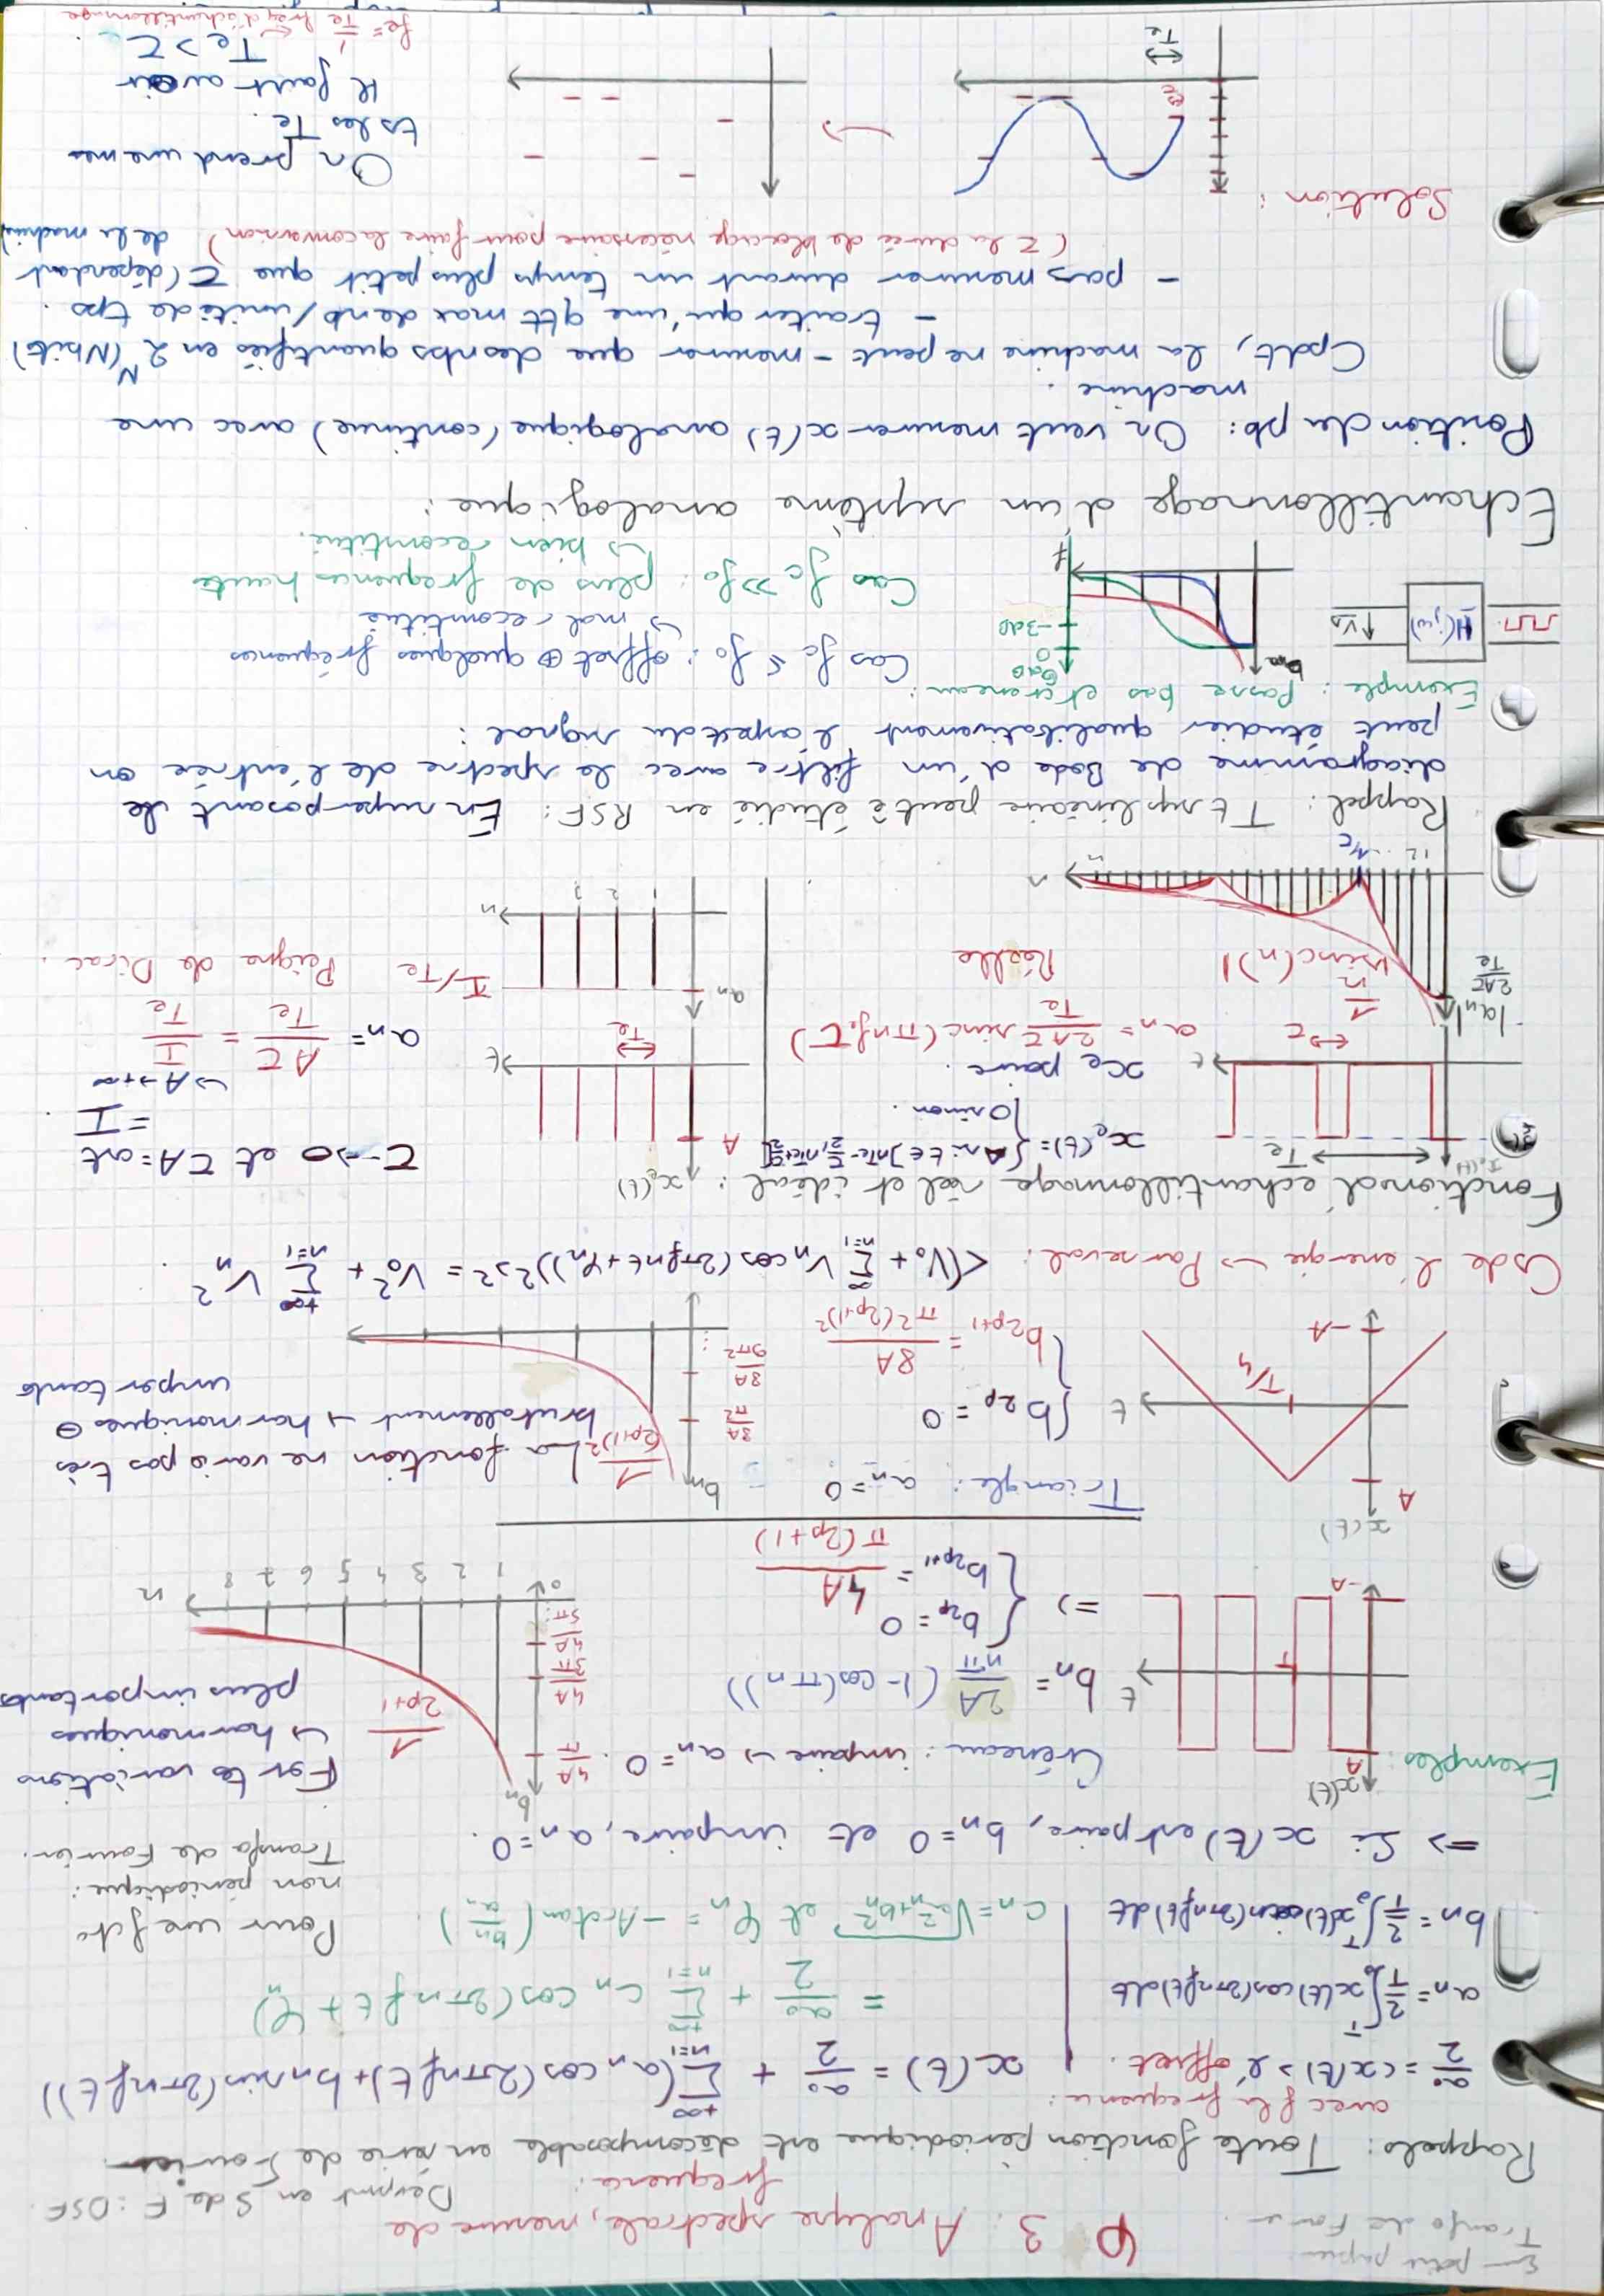 φ 3 : Analyse spectrale, mesure de
fréquence.
Transfo de Fourier
Dévpmt en S de F : DSF.
Rappels : Toute fonction périodique est décomposable en série de Fourier
avec f la fréquence :
a₀/2 = <x(t)> l'offset.
x(t) = a₀/2 + Σ_{n=1}^{+∞} (aₙ cos(2πnft) + bₙ sin(2πnft))
aₙ = 2/T ∫₀ᵀ x(t)cos(2πnft)dt
= a₀/2 + Σ_{n=1}^{+∞} Cₙ cos(2πnft + φₙ)
bₙ = 2/T ∫₀ᵀ x(t)sin(2πnft)dt
Cₙ = √(aₙ²+bₙ²) et φₙ = -Arctan(bₙ/aₙ).
Pour une fct°
non périodique :
Transfo de Fourier.
=> Si x(t) est paire, bₙ=0 et impaire, aₙ=0.
Exemples :
x(t)
A
T
t
-A
Créneau : impaire → aₙ=0.
bₙ = 2A/nπ (1-cos(πn))
=> { b₂ₚ = 0
b₂ₚ₊₁ = 4A/π(2p+1)
bₙ
4A/π
4A/3π
4A/5π
0 1 2 3 4 5 6 7 8 n
1/2p+1
Fortes variations
↪ harmoniques
plus importants
x(t)
A
T/4
t
-A
Triangle : aₙ=0
{ b₂ₚ = 0
b₂ₚ₊₁ = 8A/π²(2p+1)²
bₙ
8A/π²
8A/9π²
1/(2p+1)²
La fonction ne varie pas très
brutallement → harmoniques ⊖
importants
Cs de l'énergie → Parseval : <(V₀ + Σ_{n=1}^{∞} Vₙ cos(2πfnt+φₙ))²>² = V₀² + Σ_{n=1}^{+∞} Vₙ²
Fonction d'échantillonnage réel et idéal :
Te
t
τ
xₑ(t) = { A si t ∈ ]nTe-τ/2, nTe+τ/2[
0 sinon.
xₑ paire.
aₙ = 2Aτ/Te sinc(πnfₑτ)
Réelle
|aₙ|
2Aτ/Te
1/n
|sinc(n)|
1 2 ... 1/τ
n
xₑ(t)
A
Te
t
τ→0 et τA=cst
= I
↪ A→+∞
aₙ = Aτ/Te = I/Te
Peigne de Dirac.
aₙ
I/Te
1 2 3 n
Rappel : Tt syst linéaire peut ê étudié en RSF : En superposant le
diagramme de Bode d'un filtre avec le spectre de l'entrée on
peut étudier qualitativement l'aspect du signal :
Exemple : Passe bas et créneau :
H(jω)
Vs
bₙ
GdB
0
-3dB
f
Cas fc ≤ f₀ : offset ⊕ quelques fréquences
↪ mal reconstitué
Cas fc >> f₀ : plus de fréquences hautes
↪ bien reconstitué.
Echantillonnage d'un système analogique :
Position du pb : On veut mesurer x(t) analogique (continue) avec une
machine.
Cpdt, la machine ne peut - mesurer que des nbs quantifiés en 2ᴺ (N bits)
- traiter qu'une qtt max de nb/unité de tps.
- pas mesurer durant un temps plus petit que τ (dépendant
de la machine)
(τ la durée de blocage nécessaire pour faire la conversion)
Solution :
τ
Te
On prend une mes
ts les Te.
Il faut avoir
Te > τ.
fe = 1/Te ← freq d'échantillonnage